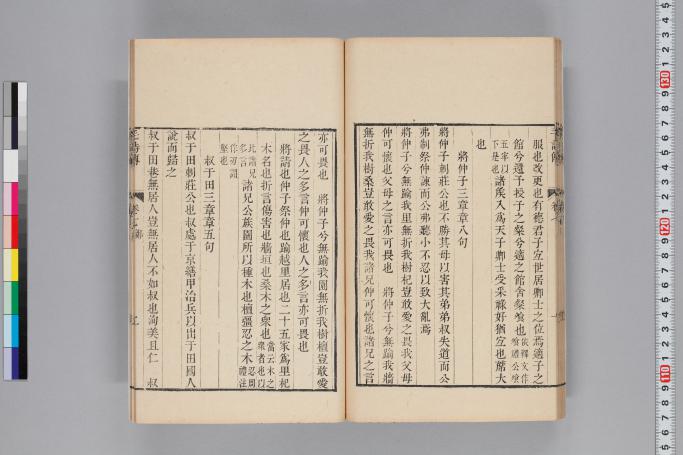 服也改更也有德君子宜世居卿士之位焉適子之
館兮還予授子之粲兮適之館舍粲飧也
諸矦入爲天子卿士受采祿好猶宜也蓆大
也
將仲子三章章八句
將仲子刺莊公也不勝其母以害其弟弟叔失道而公
弗制祭仲諫而公弗聽小不忍以致大亂焉
將仲子兮無踰我里無折我樹杞豈敢愛之畏我父母
仲可懷也父母之言亦可畏也 將仲子兮無踰我牆
無折我樹桑豈敢愛之畏我諸兄仲可懷也諸兄之言
亦可畏也 將仲子兮無踰我園無折我樹檀豈敢愛
之畏人之多言仲可懷也人之多言亦可畏也
將請也仲子祭仲也踰越里居也二十五家爲里杞
木名也折言傷害也牆垣也桑木之衆也
諸兄公族園所以種木也檀彊忍之木
叔于田三章章五句
叔于田刺莊公也叔處于京繕甲治兵以出于田國人
說而歸之
叔于田巷無居人豈無居人不如叔也洵美且仁 叔